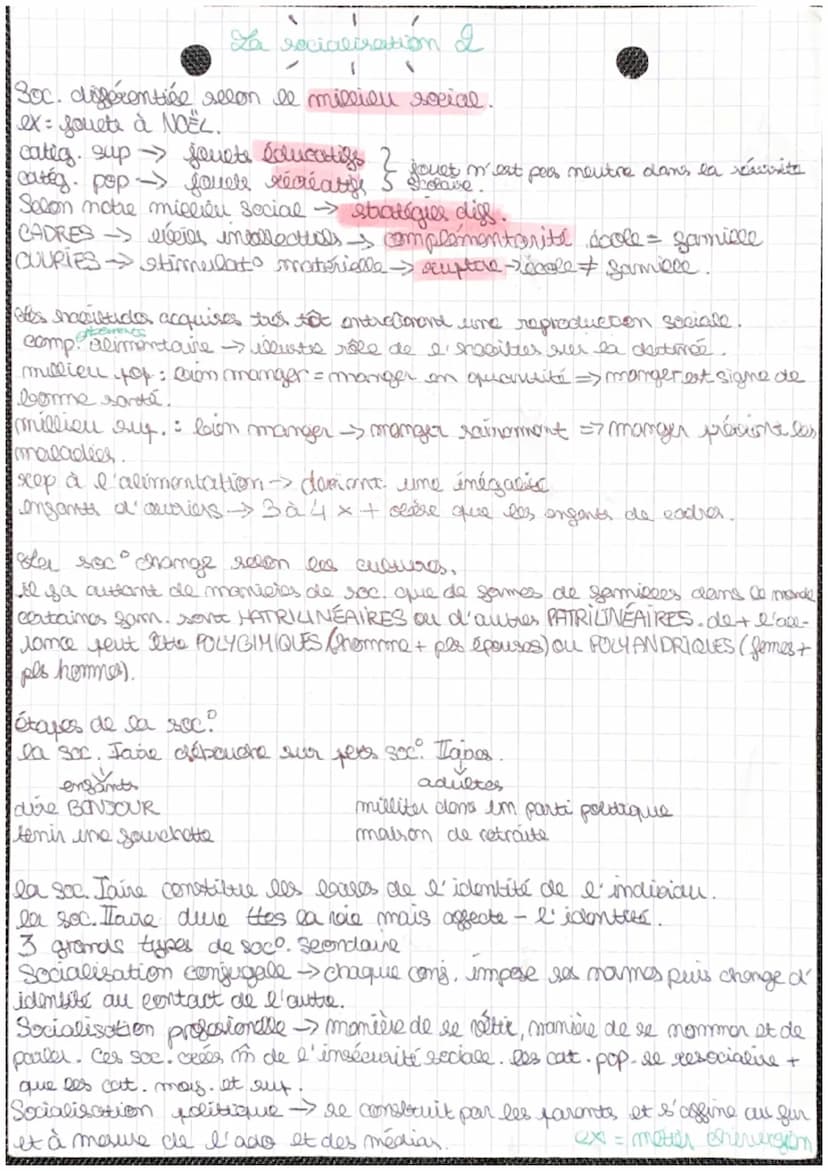 La socialisation 2
Soc. différentiée selon le millieu social.
ex = jouets à NOËL.
catég. sup → jouets éducatifs
catég. pop → jouets récréatifs } jouet n'est pas neutre dans la réussite scolaire.
Selon notre millieu social → stratégies diff.
CADRES → loisirs intellectuels → complémentarité école = famille
OUVRIES → stimulat° matérielle → rupture → école ≠ famille.
Les habitudes acquises très tôt entretiennent une reproduction sociale.
comp. alimentaire → illustre rôle de l'habitus sur la destinée.
millieu pop : bien manger = manger en quantité => manger est signe de
bonne santé.
millieu sup. : bien manger → manger sainement => manger prévient les
maladies.
rap à l'alimentation → devient une inégalité
enfants d'ouvriers → 3 à 4 x + obèse que les enfants de cadres.
La soc° change selon les cultures.
il y a autant de manières de soc. que de formes de familles dans le monde
certaines fam. sont MATRILINÉAIRES ou d'autres PATRILINÉAIRES. de + l'all-
iance peut être POLYGIMIQUES (homme + pls épouses) ou POLYANDRIQUES (femes +
pls hommes).
étapes de la soc°
la soc. Iaire débouche sur pls soc° IIaires.
enfants adultes
dire BONJOUR milliter dans un parti politique
tenir une fourchette maison de retraite
la soc. Iaire constitue les bases de l'identité de l'individu.
la soc. IIaire dure ttes la vie mais affecte - l'identité.
3 grands types de soc°. secondaire
Socialisation conjugale → chaque conj. impose ses normes puis change d'
identité au contact de l'autre.
Socialisation professionelle → manière de se vêtir, manière de se nommer et de
parler. Ces soc. crées m̂ de l'insécurité sociale. les cat. pop. se resocialise +
que les cat. moy. et sup.
Socialisation politique → se construit par les parents et s'affine au fur
et à mesure de l'ado et des médias. ex = métier